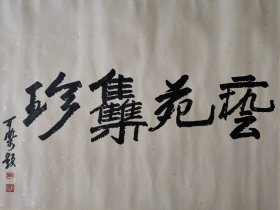 藝苑雧珍
丁聚題